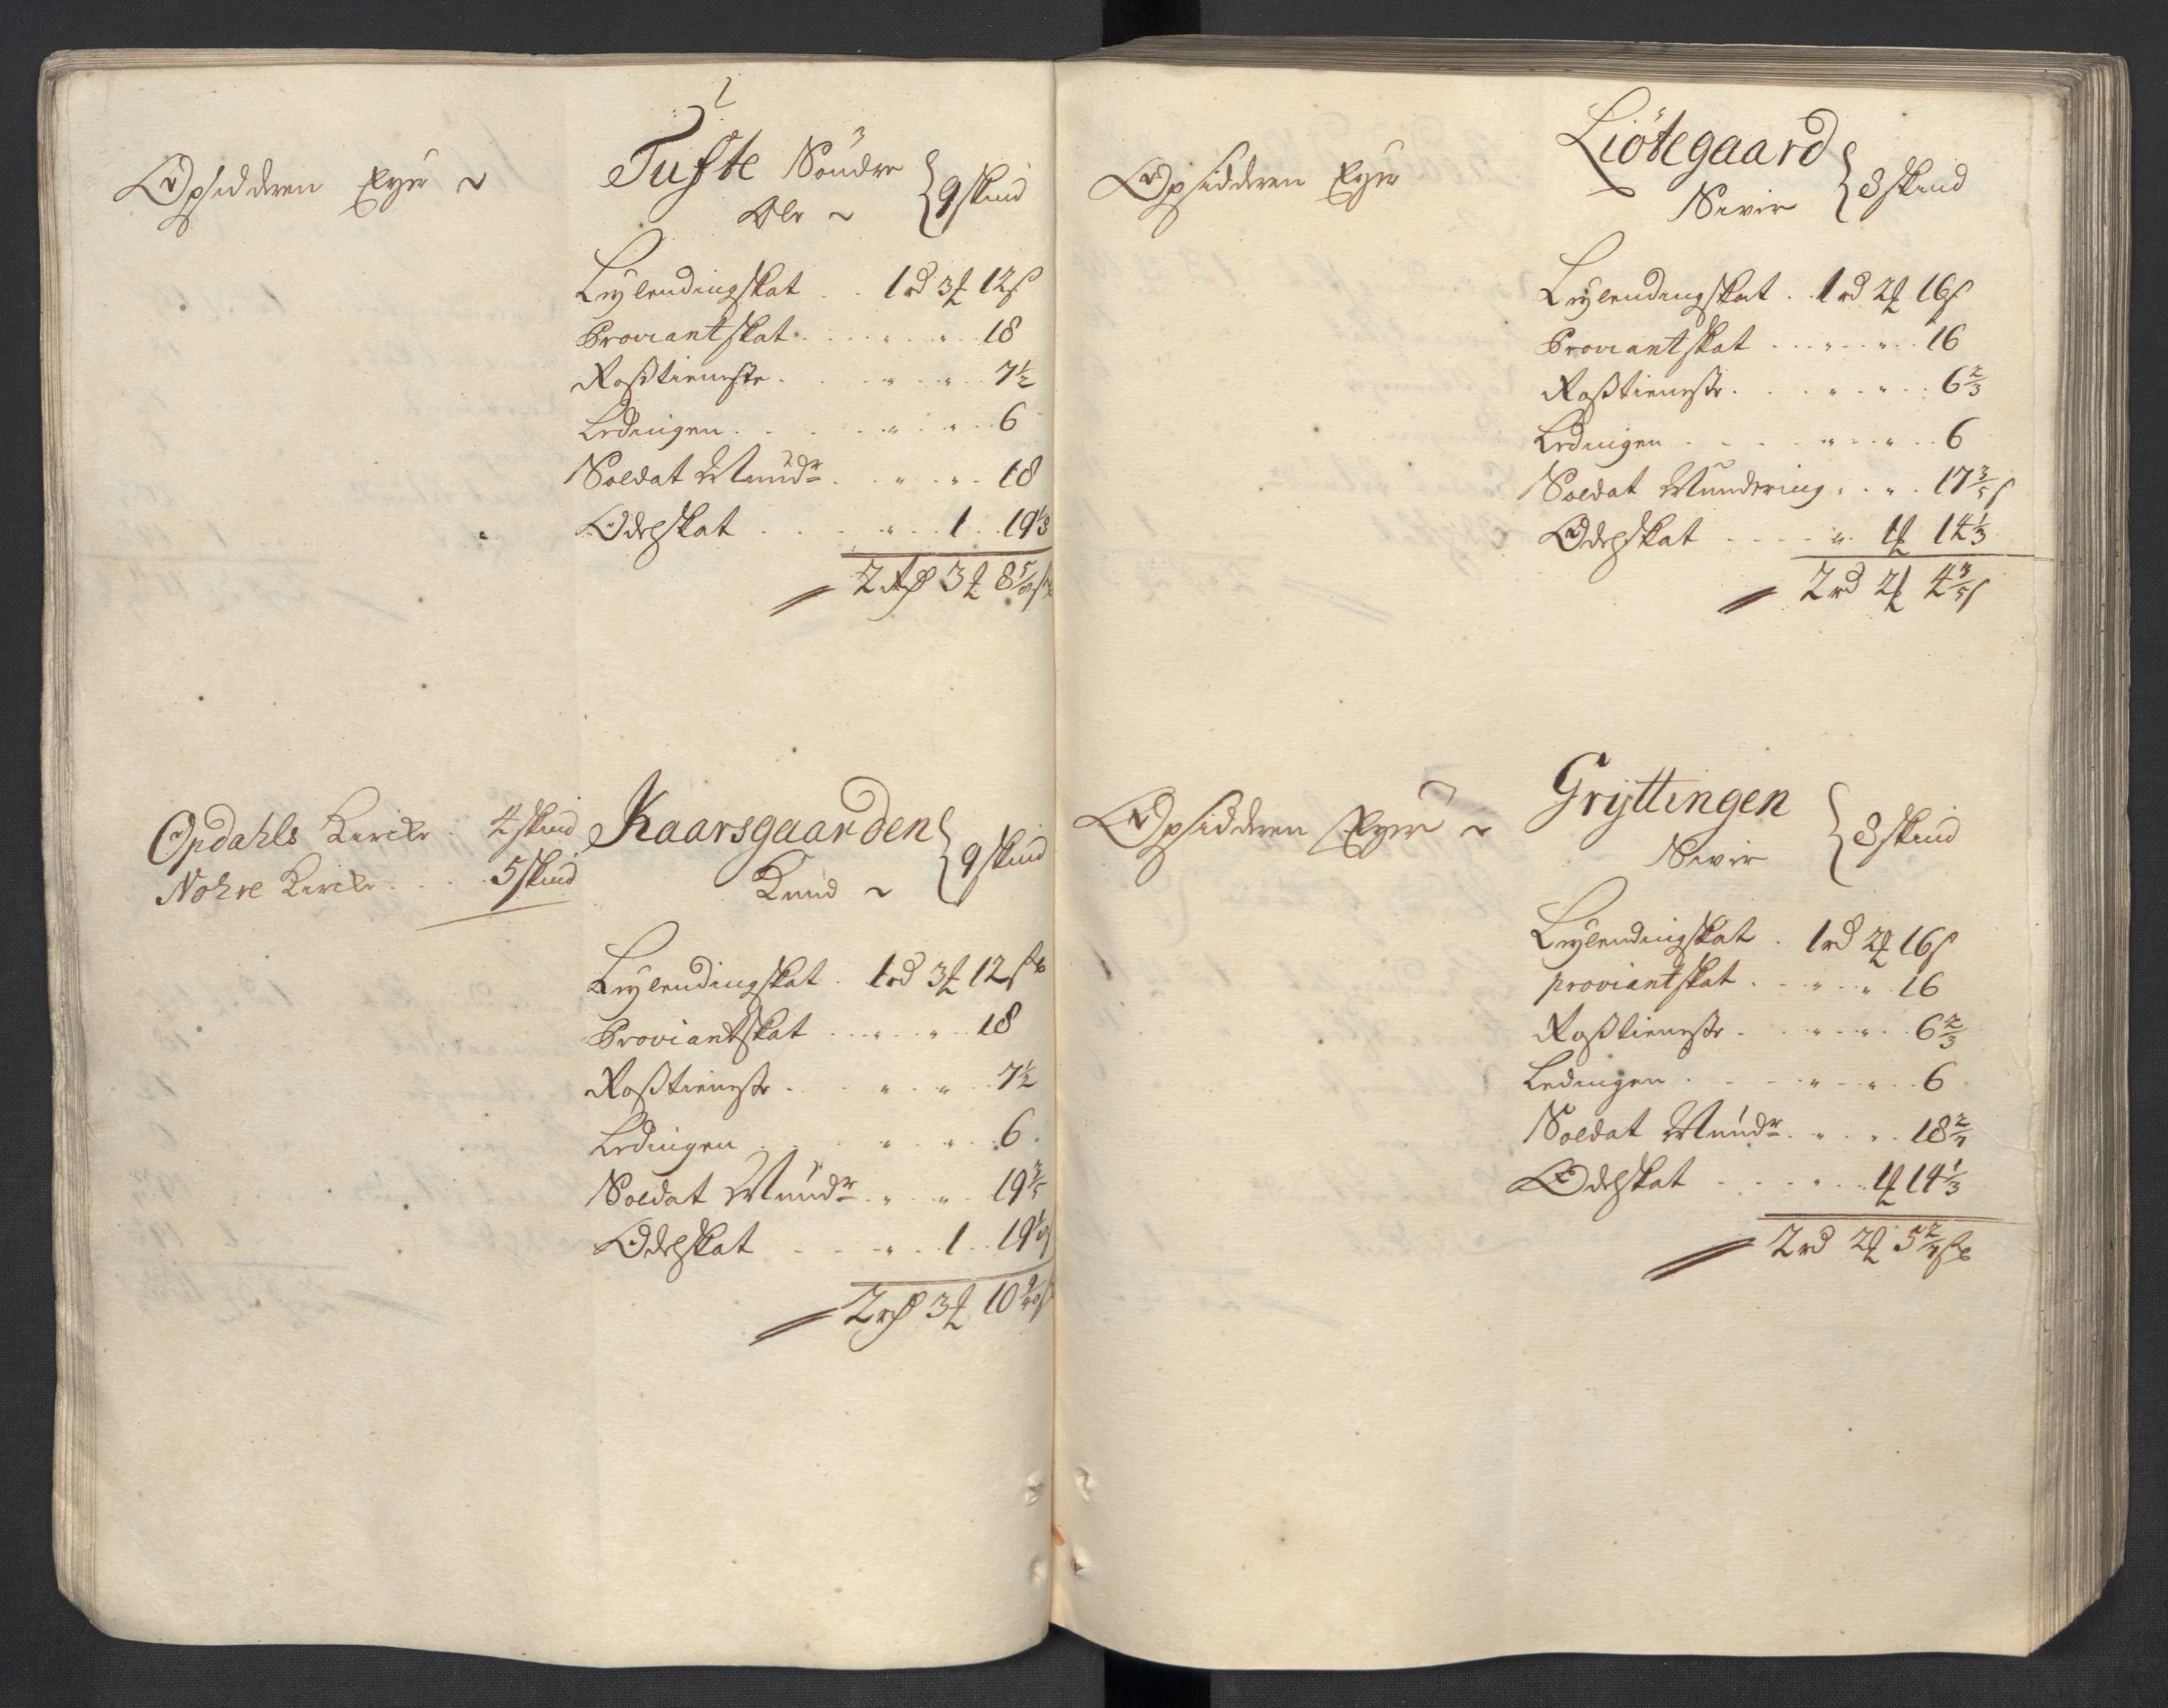 Opsidderen Eyer ~
Tufte Søndre
Ole ~ } 9 skind
Leylendingskat . . 1 rd 3 ß 12 s
Proviantskat . . . . . 18
Rosstieneste . . . . . 7 1/2
Ledingen . . . . . 6
Soldat Mundr . . . . 18
Odelskat . . . . 1 . 19 1/8
2 rd 3 ß 8 5/8 s
Opdahls Kircke . 4 skind
Nohre Kircke . . . . 5 skind
Kaarsgaarden
Knud ~ } 9 skind
Leylendingskat . 1 rd 3 ß 12 s
Proviantskat . . . . . 18
Rosstieneste . . . . 7 1/2
Ledingen . . . . . 6
Soldat Mundr . . . . 19 3/5
Odelskat . . . . 1 . . 19 1/8
2 rd 3 ß 10
Opsidderen Eyer
Liøtegaard
Siver } 8 skind
Leylendingskat . . 1 rd 2 ß 16 s
Proviantskat . . . . . 16
Rosstieneste . . . . . 6 2/3
Ledingen . . . . . . 6
Soldat Mundering . . . 17 3/5 s
Odelskat . . . . 1 ß 14 1/3
2 rd 2 ß 4 3/5 s
Opsidderen Eyer ~
Gryttingen
Siver } 8 skind
Leylendingskat . 1 rd 2 ß 16 s
proviantskat . . . . . 16
Rosstieneste . . . . . 6 2/3
Ledingen . . . . . . 6
Soldat Mundr . . . . 18 2/7
Odelskat . . . . . 1 ß 14 1/3
2 rd 2 ß 5 2/7 s